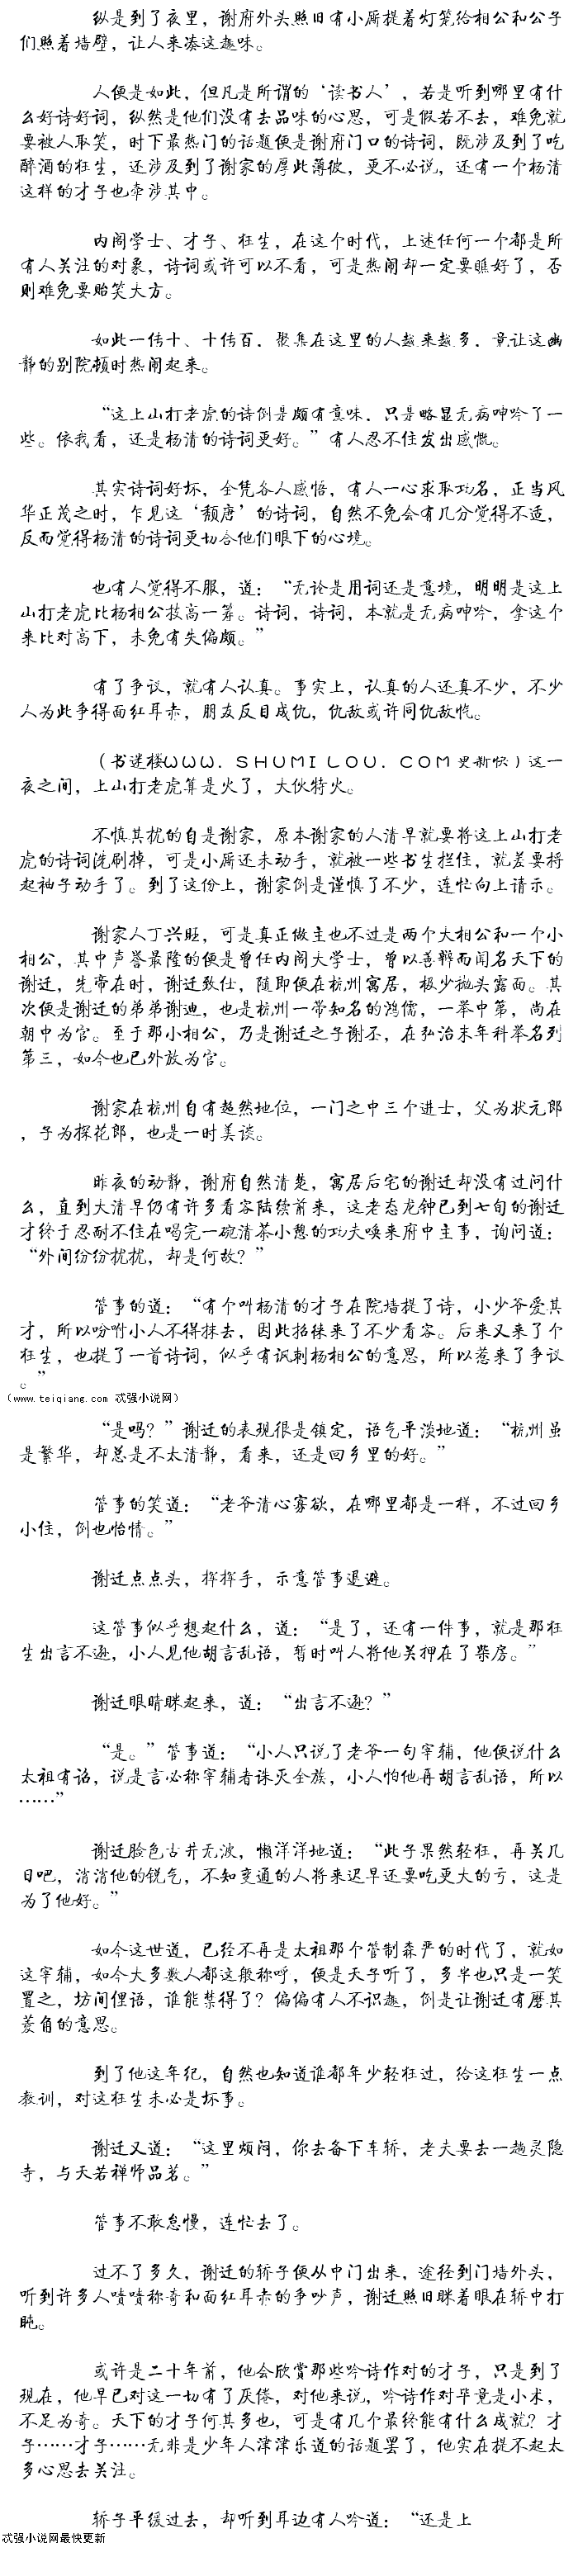 纵是到了夜里，谢府外头照旧有小厮提着灯笼给相公和公子
们照着墙壁，让人来凑这趣味。
人便是如此，但凡是所谓的‘读书人’，若是听到哪里有什
么好诗好词，纵然是他们没有去品味的心思，可是假若不去，难免就
要被人取笑，时下最热门的话题便是谢府门口的诗词，既涉及到了吃
醉酒的狂生，还涉及到了谢家的厚此薄彼，更不必说，还有一个杨清
这样的才子也牵涉其中。
内阁学士、才子、狂生，在这个时代，上述任何一个都是所
有人关注的对象，诗词或许可以不看，可是热闹却一定要瞧好了，否
则难免要贻笑大方。
如此一传十、十传百，聚集在这里的人越来越多，竟让这幽
静的别院顿时热闹起来。
“这上山打老虎的诗倒是颇有意味，只是略显无病呻吟了一
些。依我看，还是杨清的诗词更好。”有人忍不住发出感慨。
其实诗词好坏，全凭各人感悟，有人一心求取功名，正当风
华正茂之时，乍见这‘颓唐’的诗词，自然不免会有几分觉得不适，
反而觉得杨清的诗词更切合他们眼下的心境。
也有人觉得不服，道：“无论是用词还是意境，明明是这上
山打老虎比杨相公技高一筹。诗词，诗词，本就是无病呻吟，拿这个
来比对高下，未免有失偏颇。”
有了争议，就有人认真。事实上，认真的人还真不少，不少
人为此争得面红耳赤，朋友反目成仇，仇敌或许同仇敌忾。
（书迷楼WWW．SHUMILOU．COM更新快）这一
夜之间，上山打老虎算是火了，大伙特火。
不慎其扰的自是谢家，原本谢家的人清早就要将这上山打老
虎的诗词洗刷掉，可是小厮还未动手，就被一些书生拦住，就差要捋
起袖子动手了。到了这份上，谢家倒是谨慎了不少，连忙向上请示。
谢家人丁兴旺，可是真正做主也不过是两个大相公和一个小
相公，其中声誉最隆的便是曾任内阁大学士，曾以善辩而闻名天下的
谢迁，先帝在时，谢迁致仕，随即便在杭州寓居，极少抛头露面。其
次便是谢迁的弟弟谢迪，也是杭州一带知名的鸿儒，一举中第，尚在
朝中为官。至于那小相公，乃是谢迁之子谢丕，在弘治末年科举名列
第三，如今也已外放为官。
谢家在杭州自有超然地位，一门之中三个进士，父为状元郎
，子为探花郎，也是一时美谈。
昨夜的动静，谢府自然清楚，寓居后宅的谢迁却没有过问什
么，直到大清早仍有许多看客陆续前来，这老态龙钟已到七旬的谢迁
才终于忍耐不住在喝完一碗清茶小憩的功夫唤来府中主事，询问道：
“外间纷纷扰扰，却是何故？”
管事的道：“有个叫杨清的才子在院墙提了诗，小少爷爱其
才，所以吩咐小人不得抹去，因此招徕来了不少看客。后来又来了个
狂生，也提了一首诗词，似乎有讽刺杨相公的意思，所以惹来了争议
。”
（www.teiqiang.com 忒强小说网）
“是吗？”谢迁的表现很是镇定，语气平淡地道：“杭州虽
是繁华，却总是不太清静，看来，还是回乡里的好。”
管事的笑道：“老爷清心寡欲，在哪里都是一样，不过回乡
小住，倒也怡情。”
谢迁点点头，挥挥手，示意管事退避。
这管事似乎想起什么，道：“是了，还有一件事，就是那狂
生出言不逊，小人见他胡言乱语，暂时叫人将他关押在了柴房。”
谢迁眼睛眯起来，道：“出言不逊？”
“是。”管事道：“小人只说了老爷一句宰辅，他便说什么
太祖有诏，说是言必称宰辅者诛灭全族，小人怕他再胡言乱语，所以
……”
谢迁脸色古井无波，懒洋洋地道：“此子果然轻狂，再关几
日吧，消消他的锐气，不知变通的人将来迟早还要吃更大的亏，这是
为了他好。”
如今这世道，已经不再是太祖那个管制森严的时代了，就如
这宰辅，如今大多数人都这般称呼，便是天子听了，多半也只是一笑
置之，坊间俚语，谁能禁得了？偏偏有人不识趣，倒是让谢迁有磨其
菱角的意思。
到了他这年纪，自然也知道谁都年少轻狂过，给这狂生一点
教训，对这狂生未必是坏事。
谢迁又道：“这里烦闷，你去备下车轿，老夫要去一趟灵隐
寺，与天若禅师品茗。”
管事不敢怠慢，连忙去了。
过不了多久，谢迁的轿子便从中门出来，途径到门墙外头，
听到许多人啧啧称奇和面红耳赤的争吵声，谢迁照旧眯着眼在轿中打
盹。
或许是二十年前，他会欣赏那些吟诗作对的才子，只是到了
现在，他早已对这一切有了厌倦，对他来说，吟诗作对毕竟是小术，
不足为奇。天下的才子何其多也，可是有几个最终能有什么成就？才
子……才子……无非是少年人津津乐道的话题罢了，他实在提不起太
多心思去关注。
轿子平缓过去，却听到耳边有人吟道：“还是上
忒强小说网最快更新